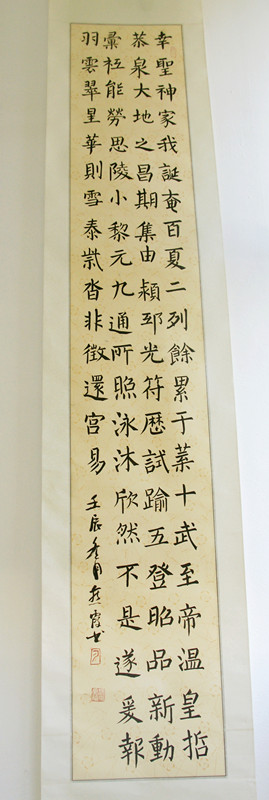 幸聖神家我誕奄百夏二列餘累于葉十武至帝溫皇哲
恭泉大地之昌期集由穎邳光符歷試踰五登昭品新動
彙祇能勞思陵小黎元九通所照泳沐欣然不是遂爰報
羽雲翠呈華則雪泰祡沓非徵還宮易
壬辰冬月